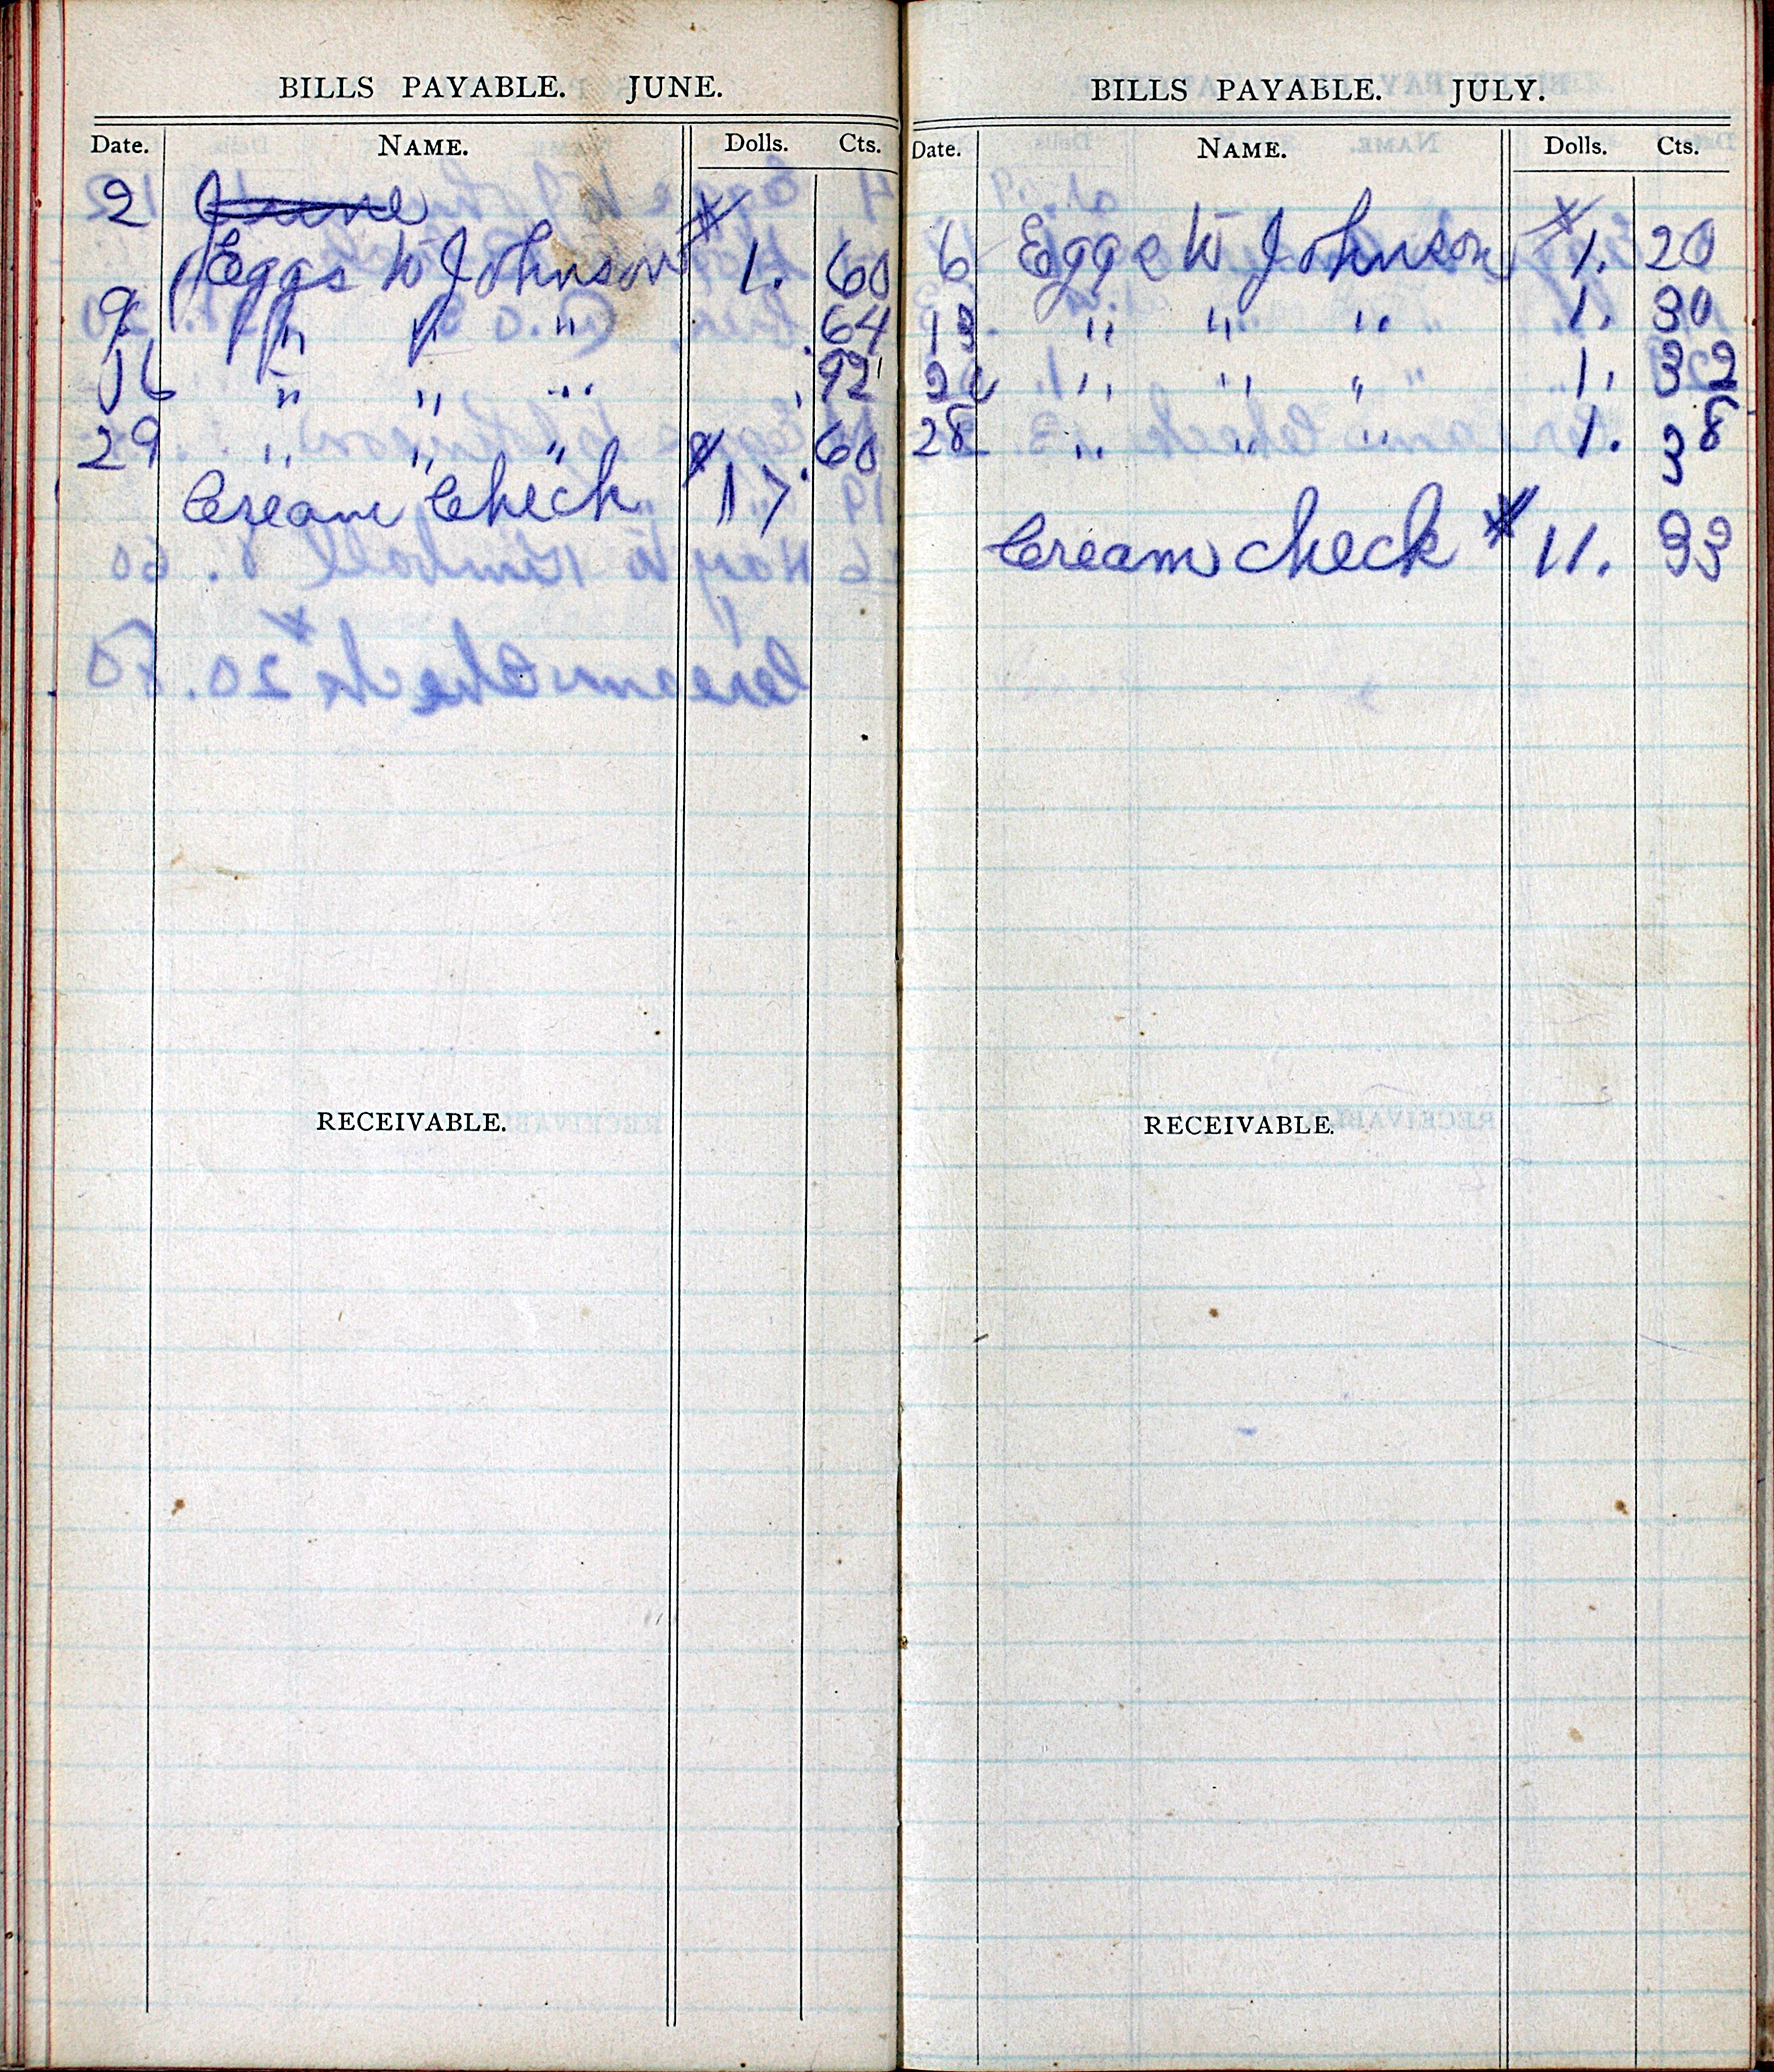 BILLS PAYABLE. JUNE.
Date. NAME. Dolls. Cts.
2 June
Eggs to Johnson $ 1. 60
9 " " " .64
16 " " " .92
29 " " " .60
Cream Check $ 17
RECEIVABLE.
BILLS PAYABLE. JULY.
Date. NAME. Dolls. Cts.
6 Eggs to Johnson $ 1. 20
13 " " " 1. 30
" " " 1. 32
28 " " " 1. 38
Cream check $ 11. 33
RECEIVABLE.